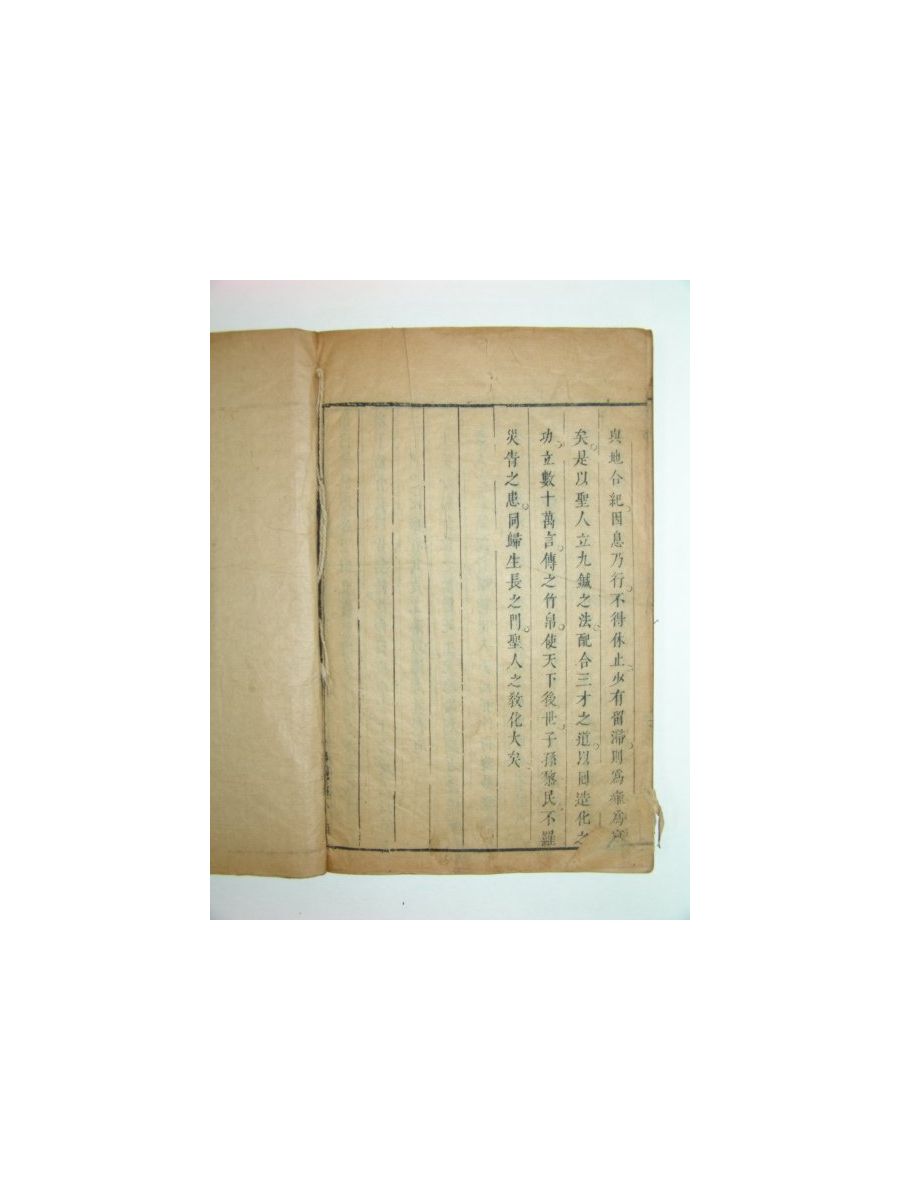 與地合紀。因息乃行。不得休止。少有留滯。則爲癰爲
矣。是以聖人立九鍼之法。配合三才之道。以回造化之
功。立數十萬言。傳之竹帛。使天下後世。子孫黎民。不羅
災眚之患。同歸生長之門。聖人之敎化大矣